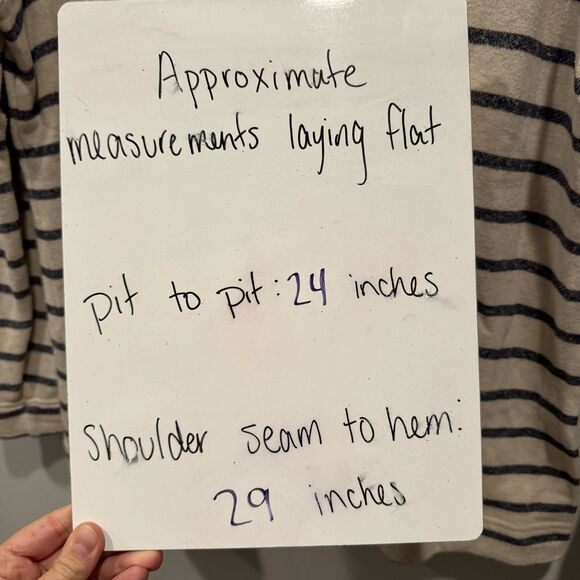 Approximate
measurements laying flat
pit to pit: 24 inches
shoulder seam to hem:
29 inches